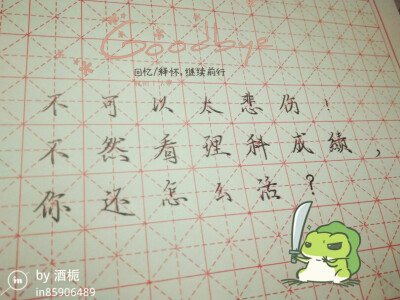 Goodbye
回忆/释怀,继续前行
不可以太悲伤！
不然看理科成绩，
你还怎么活？
by 酒栀
in85906489